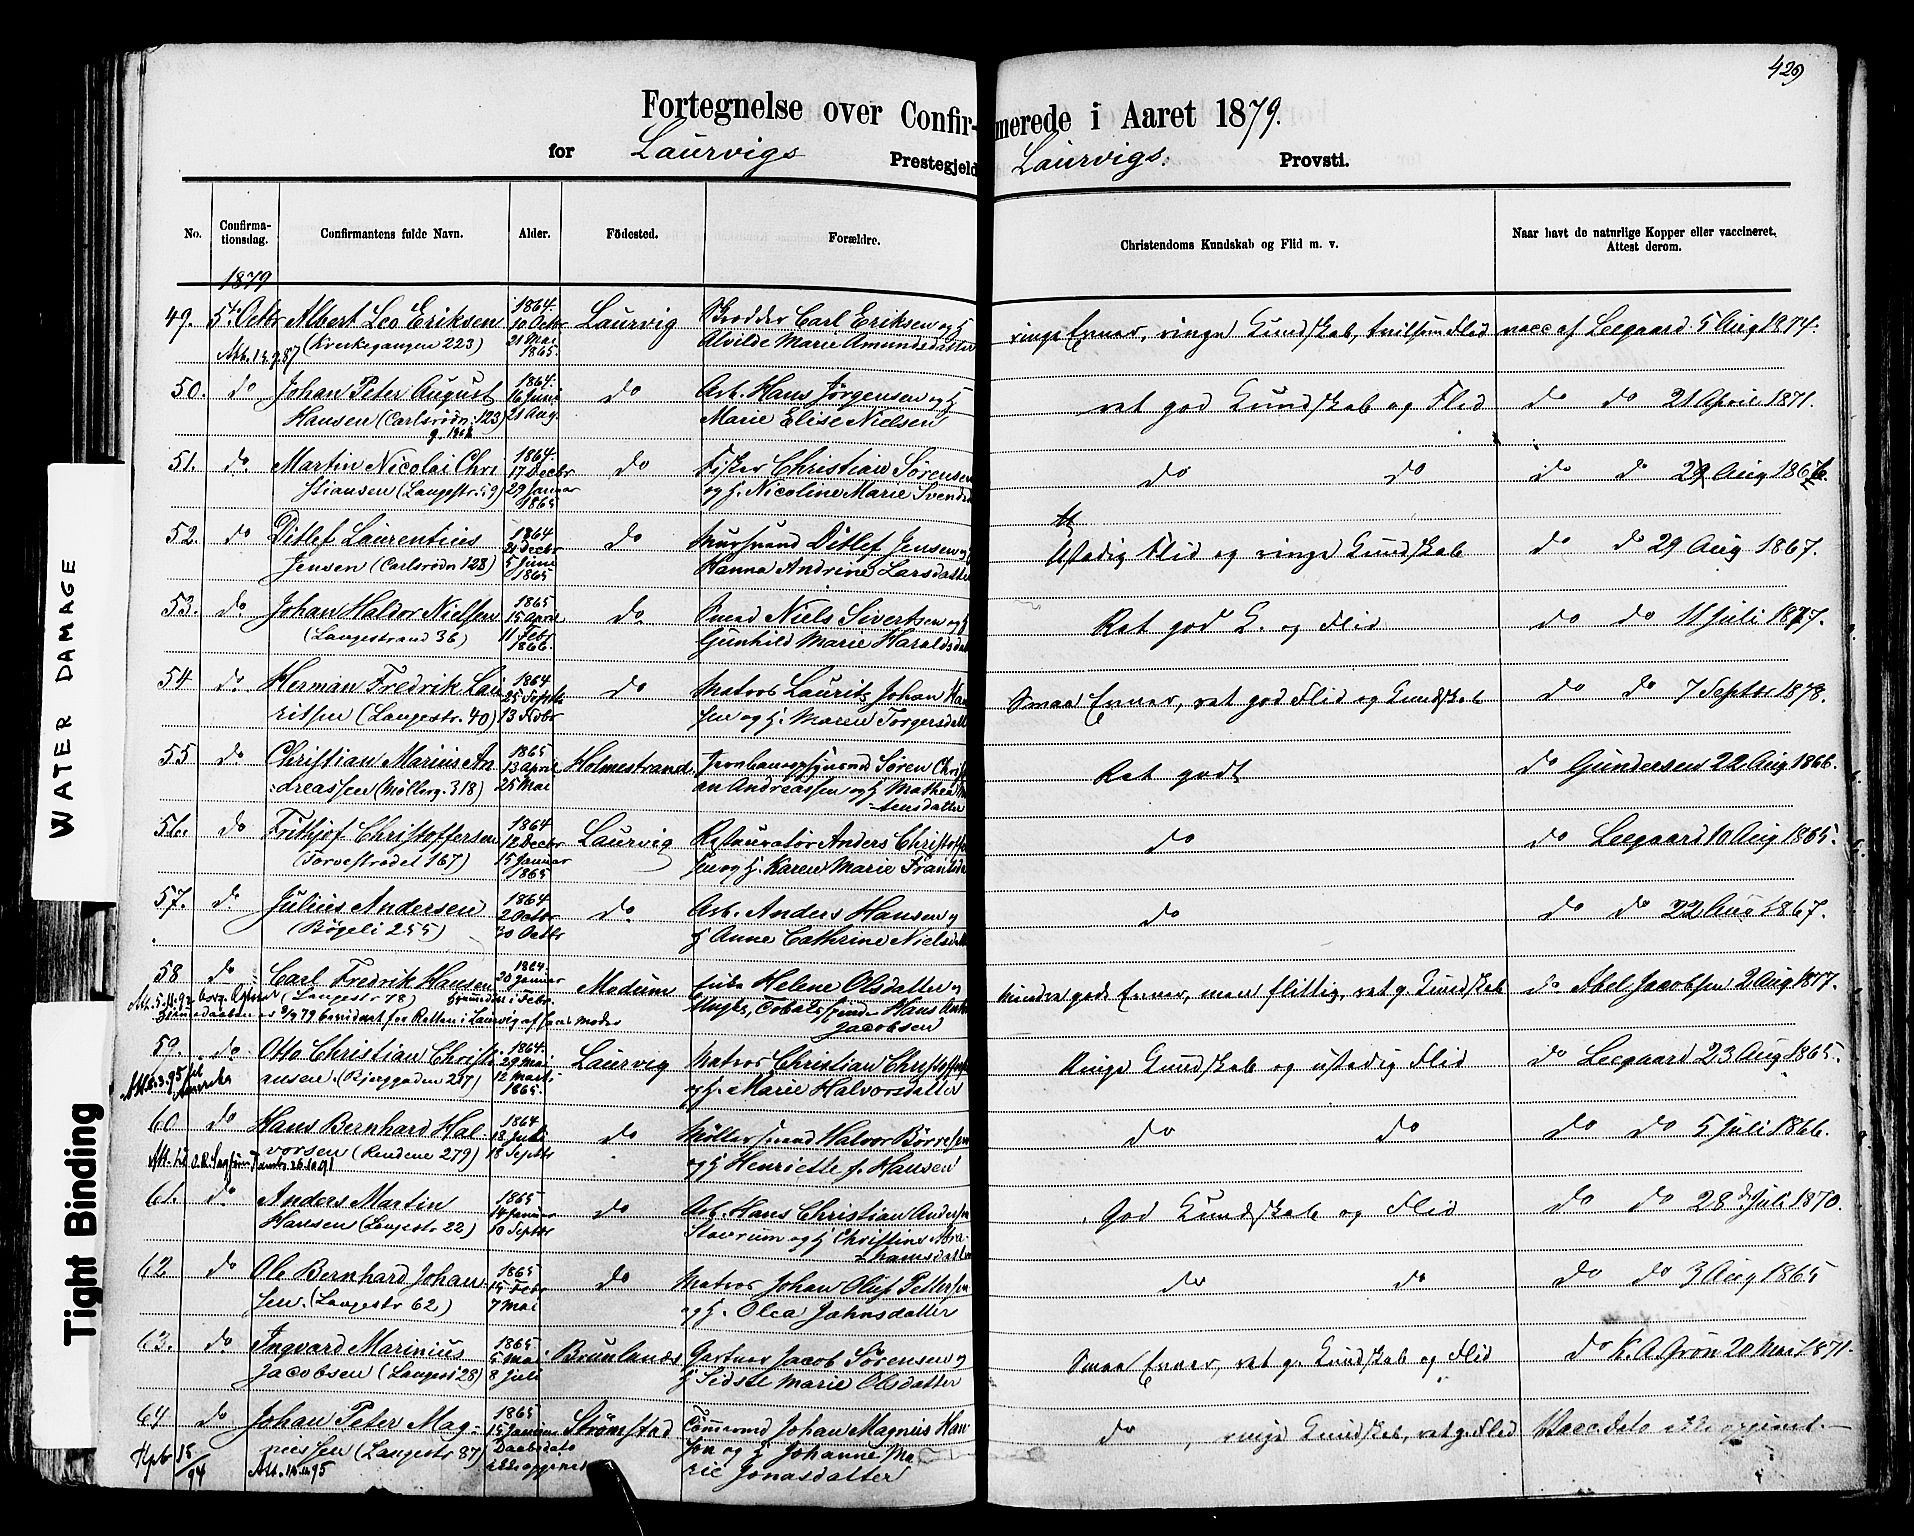 429
Fortegnelse over Confirmerede i Aaret 1879.
for Laurvigs Prestegjeld Laurvigs Provsti.
No. Confirmationsdag. Confirmantens fulde Navn. Alder. Födested. Forældre. Christendoms Kundskab og Flid m. v. Naar havt de naturlige Kopper eller vaccineret. Attest derom.
1879
49. 5te Octbr Albert Leo Eriksen 1864. 10 Octbr Laurvig Skrædder Carl Eriksen og H. ringe Evner, ringe Kundskab, Flid vacc af Leegaard 5 Aug 1874.
Att. 1887 223) 21 Mai 1865. Alvilde Marie Amundsdatter
50. do Johan Peter August 1864. 16 Juni do Arb. Hans Jørgensen og H. ret god Kundskab og Flid do do 21 April 1871.
Hansen (Carlsrødn. 123) 21 Aug. Marie Elise Nielsen
51. do Martin Nicolai Chri 1864. 17 Decbr do Fisker Christian Sørensen do do do do Aug
stiansen (Langestr. 59) 29 Januar 1865 og H. Nicoline Marie Svends
52. do Ditlef Laurentius 1864 21 Decbr do Murfund Ditlef Jensen og Ustadig Flid og ringe Kundskab do do 29 Aug 1867.
Jensen (Carlsrødn 128) 5 Juni 1865 Hanna Andrine Larsdatter
53. do Johan Haldor Nielsen 1865 15 April do Smed Niels Sivertsen og H Ret god K. og Flid do do 11 Juli 1877.
(Langestrand 36) 11 Febr 1866. Gunhild Marie Haraldsd
54 do Herman Fredrik Lau 1864 25 Septbr do Matros Lauritz Johan Han Smaa Evner, ret god Flid og Kundskab do do 7 Septbr 1878.
ritsen (Langestr. 40) 13 Novbr sen og H. Maren Torgersdatt
55 do Christian Marius An 1865 13 April Holmestrand Søren Christi Ret godt do Gundersen 22 Aug 1866.
dreassen (Møllerg. 318) 25 Mai an Andreassen og H Mathea
tensdatter
56. do Frithjof Christoffersen 1864 12 Decbr Laurvig Restauratør Anders Christoffer do do Leegaard 10 Aug 1865.
(Torvestrædet 167) 15 Januar 1865 sen og H. Karen Marie Frantsd
57. do Julius Andersen 1864 2 Octbr do Arb. Anders Hansen og do do do 22 Aug 1867.
(Bøgeli 255) 30 Octbr H Anne Cathrine Nielsd
58 do Carl Fredrik Hansen 1864. 20 Januar Modum Helene Olsdatter og mindre gode Evner, men flittig, ret g. Kundskab do Abel Jacobsen 2 Aug 1877.
(Langestr 78) i Febr. Ungk. Hans Ant
79 for Retten i Laurvig af Moder Jacobsen
59. do Otto Christian Christi 1864. 29 Mai Laurvig Matros Christian Christoffer Ringe Kundskab og ustadig Flid do Leegaard 23 Aug 1865.
ansen. (Bjerggaden 217) 12 Marts 1865. og H. Marie Halvorsdatter
Att. 8.3.95 til Amerika
60 do Hans Bernhard Hal- 1864 18 Juli do Møllersvend Halvor Børresen do do do do 5 Juli 1866.
vorsen (Rendene 279) 18 Septbr og H Henriette f. Hansen
61. do Anders Martin 1865 14 Januar do Arb. Hans Christian Anders God Kundskab og Flid do do 28de Juli 1870.
Hansen (Langestr. 22) 10 Septbr Stavrum og H Christine Abra-
hamsdatter
62 do Ole Bernhard Johan- 1865 14 Febr do Matros Johan Oluf Pettersen do do do do 3 Aug 1865
sen. (Langestr 62) 7 Mai og H. Olea Jahnsdatter
63. do Ingvard Marinius 1865 5 Mai Brunlanæs Gartner Jacob Sørensen og Smaa Evner, ret g. Kundskab og Flid do K. A. Grøn 20 Mai 1871.
Jacobsen (Langestr 28) 8 Juli H Sidsel Marie Olsdatter
64 do Johan Peter Mag- 1865 15 Januar Strømstad Tømmermd Johan Magnus Han do , ringe Kundskab, ret g. Flid Vacc. dato ikke opgivet
nussen (Langestr 87) Daabsdato ikke opgivet sen og H. Johanne Ma-
Att. 95 rie Jonasdatter
WATER DAMAGE
Tight Binding